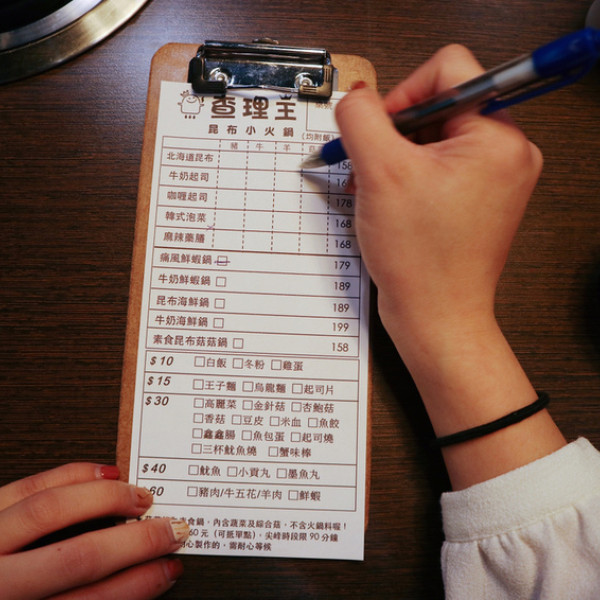 查理王
昆布小火鍋
(均附飯)
豬 牛 羊
北海道昆布 158
牛奶起司
咖喱起司 178
韓式泡菜 168
麻辣藥膳 168
痛風鮮蝦鍋□ 179
牛奶鮮蝦鍋□ 189
昆布海鮮鍋□ 189
牛奶海鮮鍋□ 199
素食昆布菇菇鍋□ 158
$10 □白飯 □冬粉 □雞蛋
$15 □王子麵 □烏龍麵 □起司片
$30 □高麗菜 □金針菇 □杏鮑菇
□香菇 □豆皮 □米血 □魚餃
□鑫鑫腸 □魚包蛋 □起司燒
□三杯魷魚燒 □蟹味棒
$40 □魷魚 □小貢丸 □墨魚丸
$60 □豬肉/牛五花/羊肉 □鮮蝦
素食鍋，內含蔬菜及綜合菇，不含火鍋料喔！
60元（可抵單點），尖峰時段限90分鐘
心製作的，需耐心等候